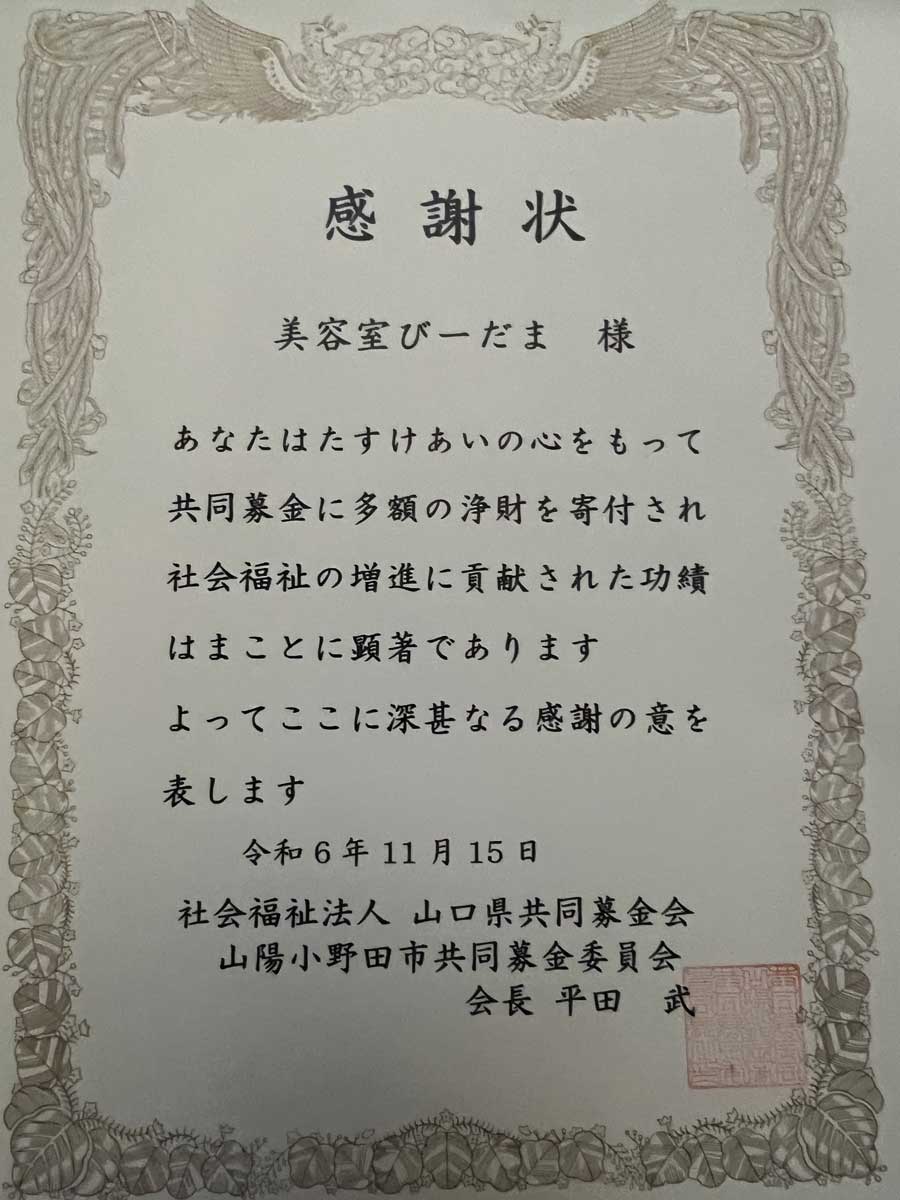 感謝状
美容室びーだま　様
あなたはたすけあいの心をもって
共同募金に多額の浄財を寄付され
社会福祉の増進に貢献された功績
はまことに顕著であります
よってここに深甚なる感謝の意を
表します
令和6年11月15日
社会福祉法人 山口県共同募金会
山陽小野田市共同募金委員会
会長 平田　武